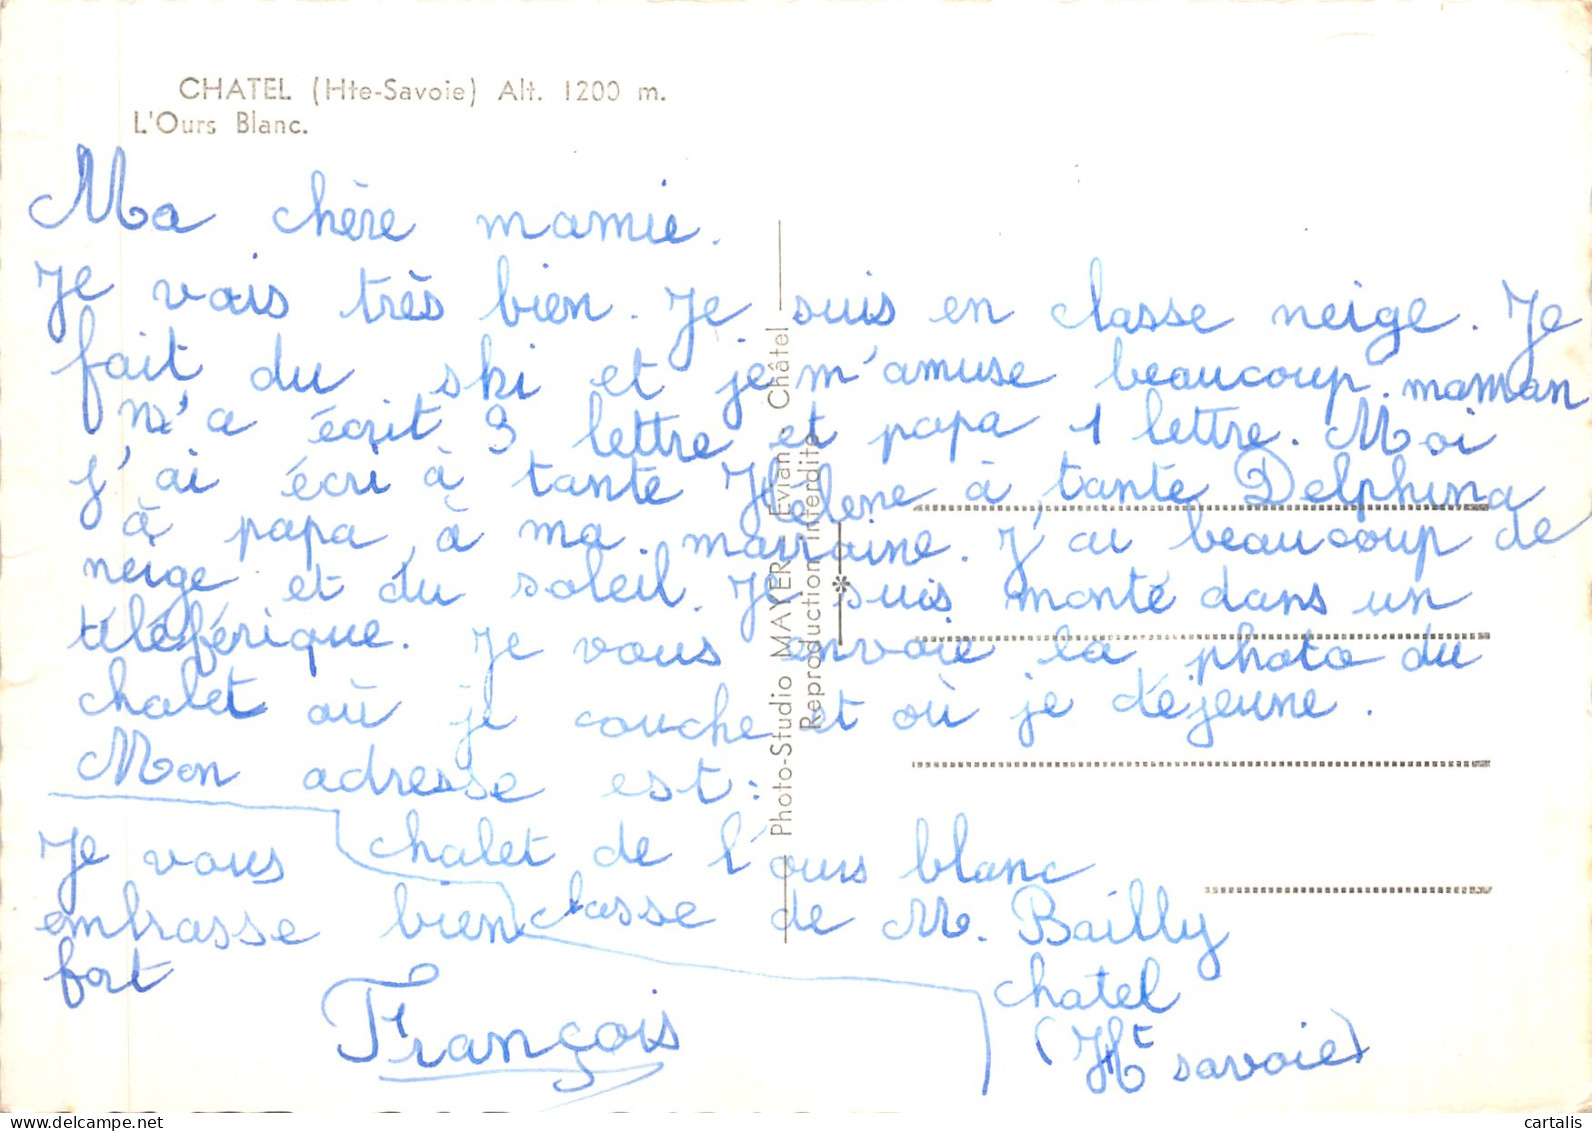 CHATEL (Hte-Savoie) Alt. 1200 m.
L'Ours Blanc.
Ma chère mamie.
Je vais très bien. Je suis en classe neige. Je
fait du ski et je m'amuse beaucoup. maman
m'a écrit 3 lettre et papa 1 lettre. Moi
j'ai écri à tante Hélene à tante Delphina
à papa, à ma marraine. J'ai beaucoup de
neige et du soleil. Je suis monté dans un
téléférique. Je vous envoie la photo du
chalet où je couche et où je déjeune.
Mon adresse est :
chalet de l'ours blanc
classe de M. Bailly
chatel
(Ht savoie)
Je vous
embrasse bien
fort
François
Photo-Studio MAYER - Evian - Châtel
Reproduction interdite
cartalis